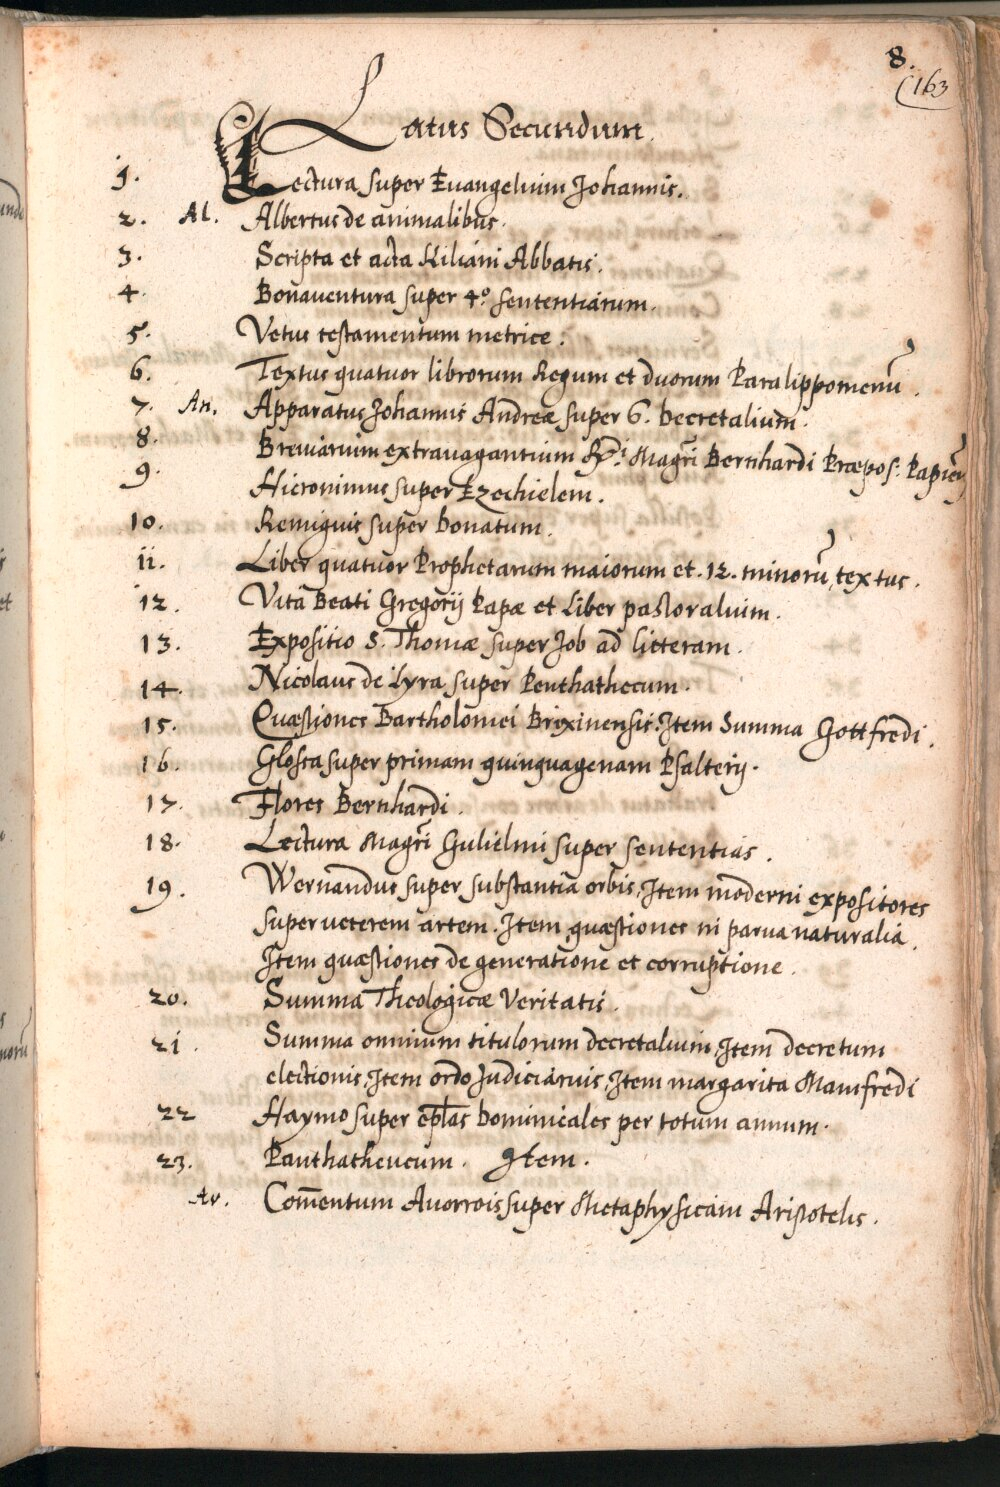 8.
163
Latus Secundum.
1. Lectura super Euangelium Johannis.
2. Al. Albertus de animalibus.
3. Scripta et acta Kiliani Abbatis.
4. Bonauentura super 4.º sententiarum.
5. Vetus testamentum metrice.
6. Textus quatuor librorum Regum et duorum Paralippomenū.
7. An. Apparatus Johannis Andreæ super 6. Decretalium.
8. Breuiarium extrauagantium Magr̄i Bernhardi Præpos: Papien̄
9. Hieronimus super Ezechielem.
10. Remigius super Donatum.
11. Liber quatuor Prophetarum maiorum et .12. minorū textus.
12. Vita Beati Gregorij Papæ et Liber pastoralium.
13. Expositio S. Thomæ super Job ad litteram.
14. Nicolaus de Lyra super Penthathecum.
15. Quæstiones Bartholomei Brixinensis. Item Summa Gottfredi.
16. Glossa super primam quinquagenam Psalterij.
17. Flores Bernhardi.
18. Lectura Magr̄i Gulielmi super sententias.
19. Wernandus super substantia orbis, Item moderni expositores
super veterem artem. Item quæstiones in parua naturalia.
Item quæstiones de generatione et corruptione.
20. Summa Theologicæ Veritatis.
21. Summa omnium titulorum decretalium, Item decretum
electionis, Item ordo Judiciarius, Item margarita Manfredi
22 Haymo super ep̄las Dominicales per totum annum.
23. Panthatheucum. Item.
Av. Com̄entum Auorrois super Metaphysicam Aristotelis.